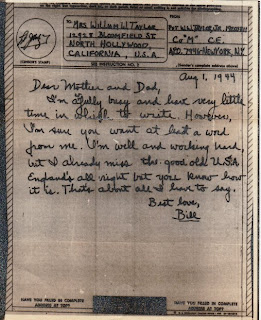 TO:
MRS. WILLIAM W. TAYLOR
12928 BLOOMFIELD ST
NORTH HOLLYWOOD,
CALIFORNIA, U.S.A.
FROM
PVT W.W. TAYLOR, JR.
Co "M" C.E.
A.P.O. NEW YORK, N.Y.
SEE INSTRUCTION NO. 2
(CENSOR'S STAMP)
Aug 1, 1944
Dear Mother and Dad,
I'm busy and have very little
time in to write. However,
I'm sure you want at least a word
from me. I'm well and working hard,
but I already miss the good old U.S.A.
England's all right but you know how
it is. That's about all I have to say.
Best love,
Bill
HAVE YOU FILLED IN COMPLETE
ADDRESS AT TOP?
HAVE YOU FILLED IN COMPLETE
ADDRESS AT TOP?